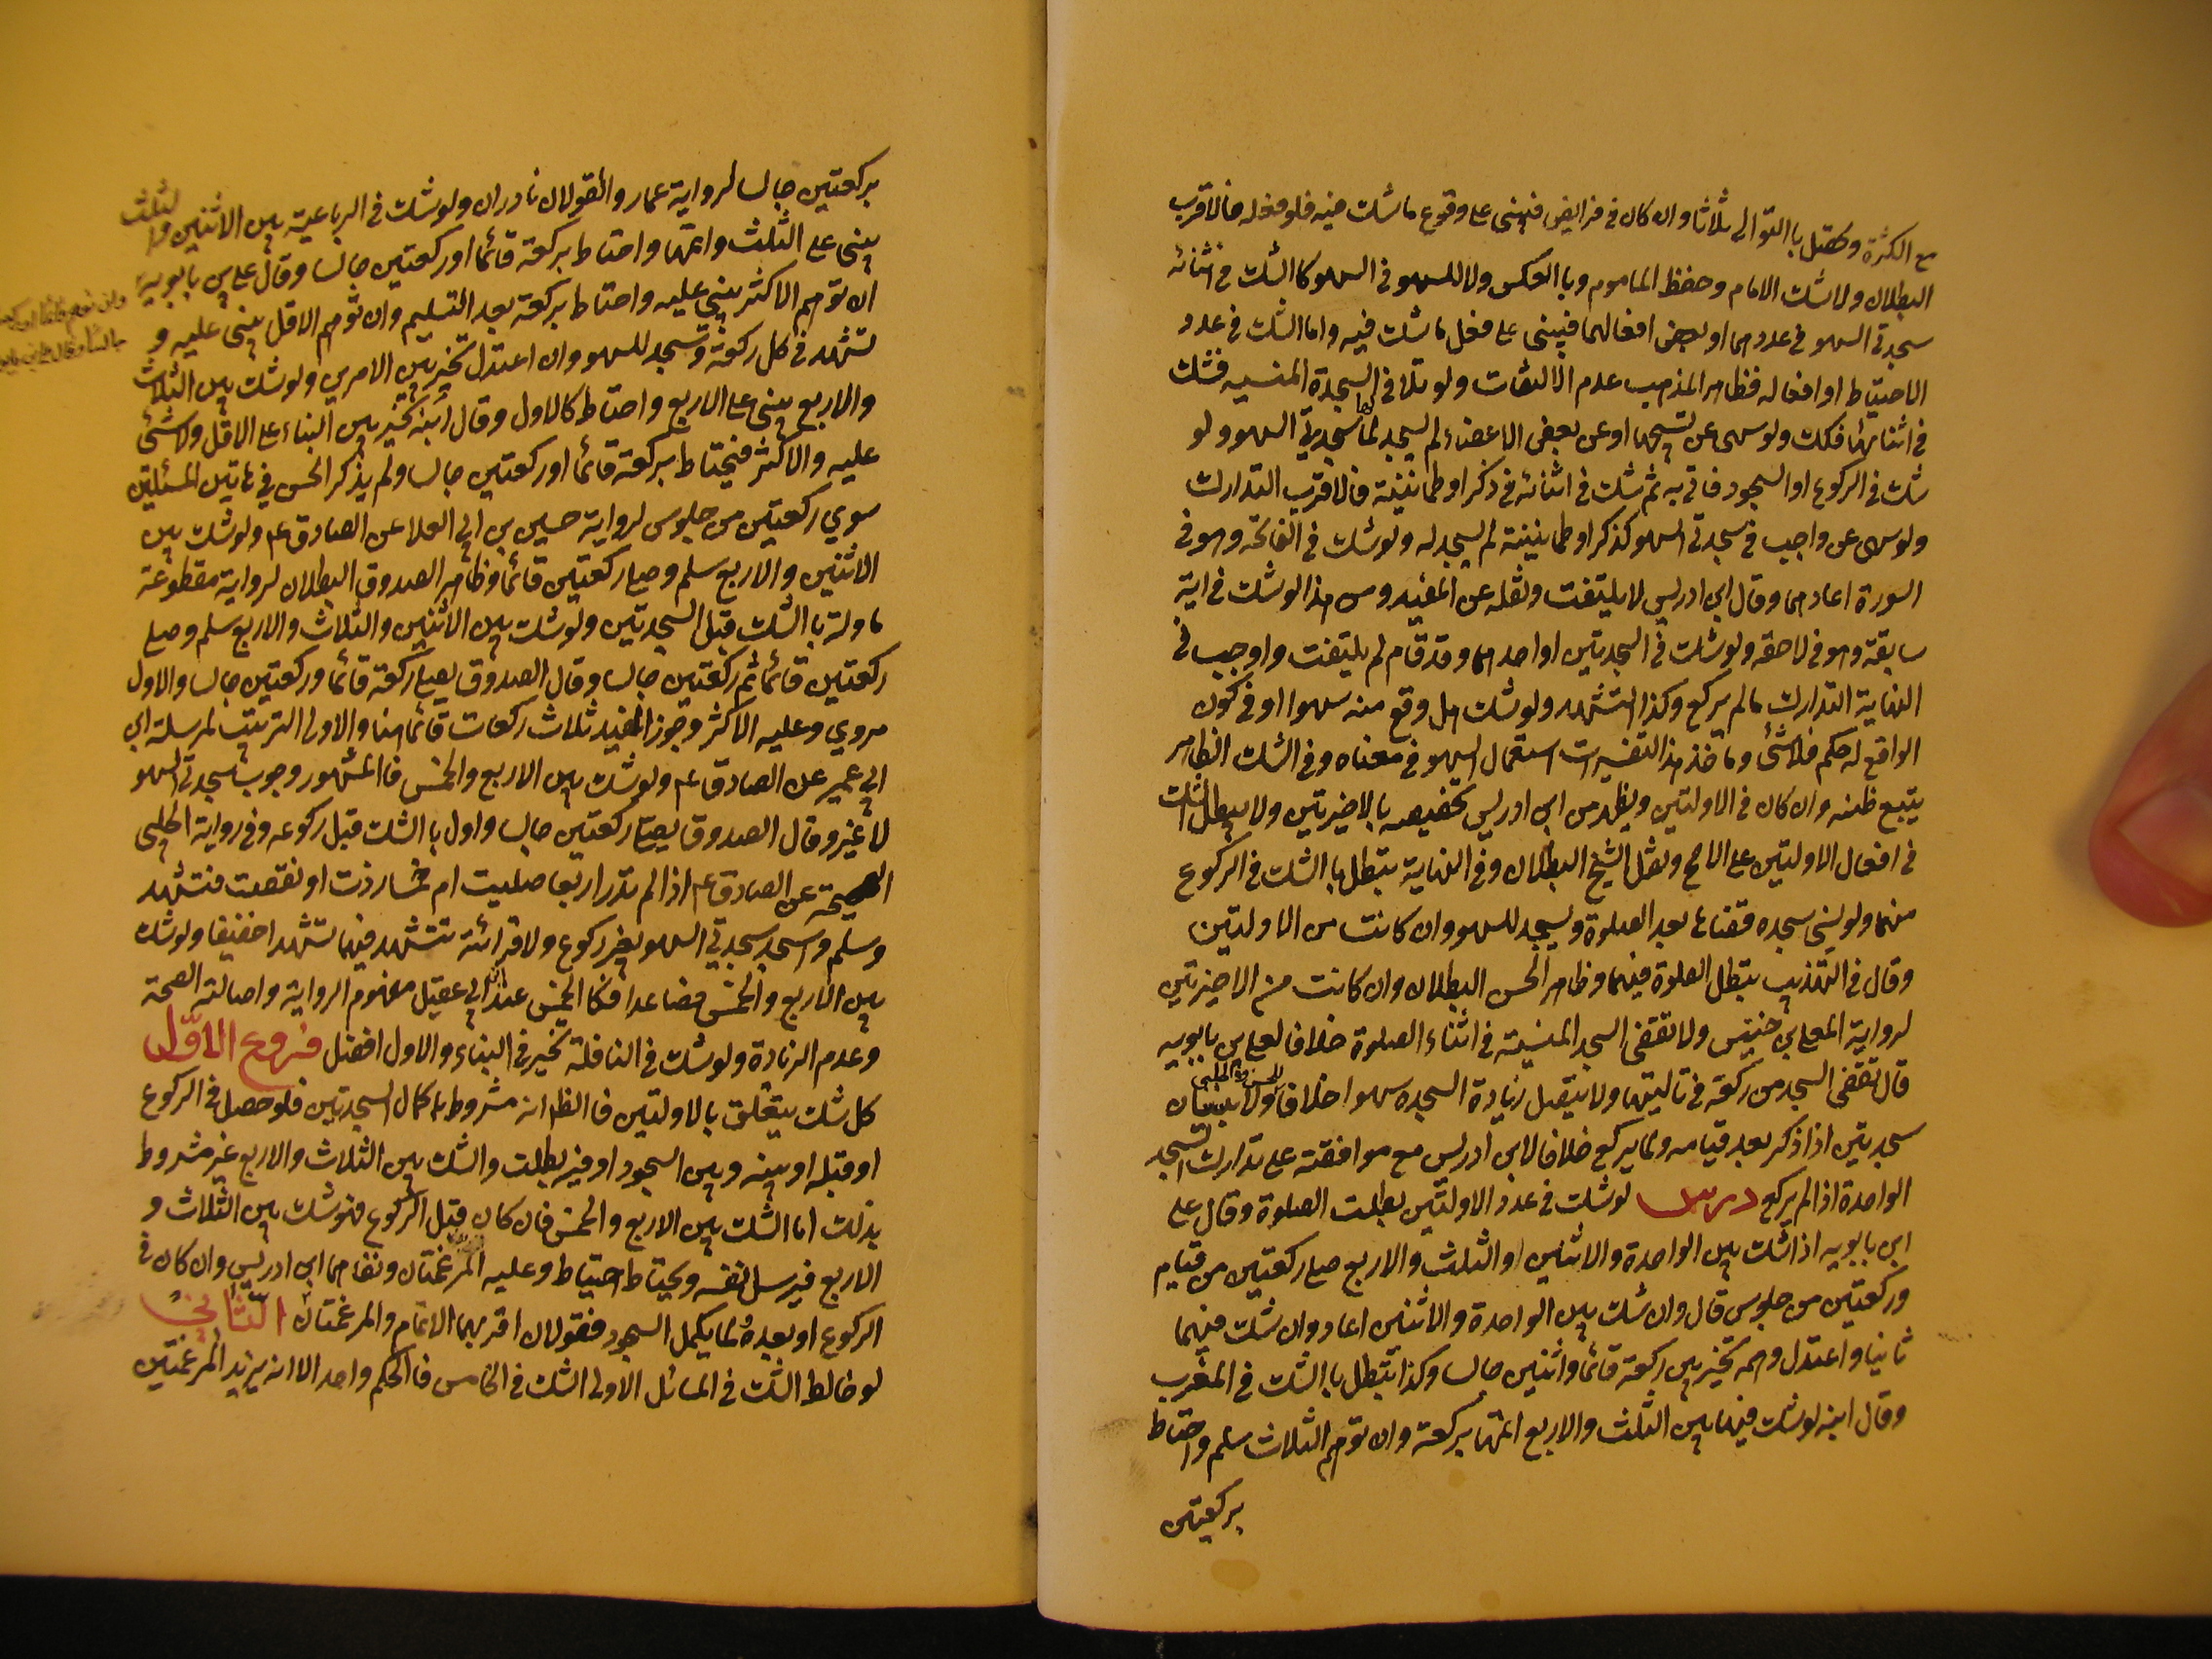 مع الكثرة وتحصل باالتوالى ثلاثا وان كان فى فرايض فيبنى على وقوع ماشك فيه فلو فعله فالاقرب
البطلان ولاشك الامام وحفظ الماموم وباالعكس ولا للسهو فى السهو كاالشك فى اثنائه
سجدتى السهو فى عددهما او بعض افعالهما فيبنى على فعل ماشك فيه واماالشك فى عدد
الاحتياط او افعاله فظاهر المذهب عدم الالتفات ولو تلافى السجدة المنسيه فشك
فى اثنائها فكك ولو سهى عن تسبيحها او عن بعض الاعضاء لم يسجد لها سجدتي السهو ولو
شك فى الركوع او السجود فاتى به ثم شك فى اثنائه فى ذكر او طمانينة فالاقرب التدارك
ولو سهى عن واجب فى سجدتى السهو كذكر او طمانينة لم يسجد له ولو شك فى الفاتحه وهو فى
السورة اعادهما وقال ابن ادريس لايلتفت ونقله عن المفيد ومن هذا لوشك فى اية
سابقة وهو فى لاحقه ولو شك فى السجدتين او احدهما وقد قام لم يلتفت واوجب فى
النهاية التدارك مالم يركع وكذا التشهد ولوشك هل وقع منه سهو او فى كون
الواقع له حكم فلاشئ وماخذ هذا التفسيرات استعمال السهو فى معناه وفى الشك الظاهر
يتبع ظنه وان كان فى الاولتين ويظهر من ابن ادريس تخصيصه بالاخيرتين ولا يبطل الشك
فى افعال الاولتين على الاصح ونقل الشيخ البطلان وفى النهاية تبطل باالشك فى الركوع
منهما ولو نسى سجده قضاها بعد الصلوة ويسجد للسهو وان كانت من الاولتين
وقال فى التهذيب تبطل الصلوة فيهما وظاهر الحسن البطلان وان كانت من الاخيرتين
لرواية المعلى بن خنيس ولا تقضى السجد المنسية فى اثناء الصلوة خلافا لعلى بن بابويه
قال تقضى السجد من ركعة فى تاليتها ولا تبطل زيادة السجده سهوا خلافا للحسن والحلبى ولا نسيان
سجدتين اذا ذكر بعد قيامه ولما يركع خلافا لابن ادريس مع موافقته على تدارك السجد
الواحدة اذا لم يركع درس لوشك فى عدد الاولتين بطلت الصلوة وقال على
ابن بابويه اذا شك بين الواحدة والاثنين او الثلث والاربع صلى ركعتين من قيام
وركعتين من جلوس قال وان شك بين الواحدة والاثنين اعاد وان شك فيهما
ثانيا واعتدل وهمه تخير بين ركعة قائما واثنين جالسا وكذا تبطل باالشك فى المغرب
وقال ابنه لوشك فيها بين الثلث والاربع اتمها بركعة وان توهم الثلاث سلم واحتاط
بركعتين
بركعتين جالسا لرواية عمار والقولان نادران ولوشك فى الرباعية بين الاثنين والثلث
يبنى على الثلث واتمها واحتاط بركعة قائما او ركعتين جالسا وقال على بن بابويه
ان توهم الاكثر يبنى عليه واحتاط بركعة بعد التسليم وان توهم الاقل يبنى عليه و
تشهد فى كل ركعة وتسجد للسهو وان اعتدل تخير بين الامرين ولو شك بين الثلاث
والاربع يبنى على الاربع واحتاط كالاول وقال ابنه تخير بين البناء على الاقل ولاشئ
عليه والاكثر فيحتاط بركعة قائما او ركعتين جالسا ولم يذكر الحسن فى هاتين المسئلتين
سوي ركعتين من جلوس لرواية حسين بن ابي العلا عن الصادق ع ولوشك بين
الاثنين والاربع سلم وصلى ركعتين قائما وظاهر الصدوق البطلان لرواية مقطوعة
ماولة باالشك قبل السجدتين ولوشك بين الاثنين والثلاث والاربع سلم وصلى
ركعتين قائما ثم ركعتين جالسا وقال الصدوق يصلى ركعة قائما وركعتين جالسا والاول
مروي وعليه الاكثر وجوز المفيد ثلاث ركعات قائما هنا والاولى الترتيب لمرسلة ابن
ابي عمير عن الصادق ع ولوشك بين الاربع والخمس فاالمشهور وجوب سجدتى السهو
لا غير وقال الصدوق يصلى ركعتين جالسا واول باالشك قبل ركوعه وفى رواية الحلبى
الصحيحة عن الصادق ع اذا لم تدر اربعا صليت ام خمسا زدت او نقصت فتشهد
وسلم واسجد سجدتي السهو بغير ركوع ولا قرائة تتشهد فيهما تشهدا خفيفا ولوشك
بين الاربع والخمس فصاعدا فكا الخمس عند ابن ابي عقيل مفهوم الرواية واصالته الصحة
وعدم الزيادة ولوشك فى النافلة تخير فى البناء والاول افضل فروع الاوّل
كل شك يتعلق بالاولتين فاالظ انه مشروط باكمال السجدتين فلو حصل فى الركوع
او قبله او بينه وبين السجود او فيه بطلت والشك بين الثلاث والاربع غير مشروط
بذلك اما الشك بين الاربع والخمس فان كان قبل الركوع فهو شك بين الثلاث و
الاربع فيرسل نفسه ويحتاط احتياط وعليه المرغمتان ونفاهما ابن ادريس وان كان فى
الركوع او بعده ولما يكمل السجود فقولان اقربهما الاتمام والمرغمتان الثّاني
لوخالط الشك فى المسائل الاولى الشك فى الخامس فاالحكم واحد الا انه يزيد المرغمتين